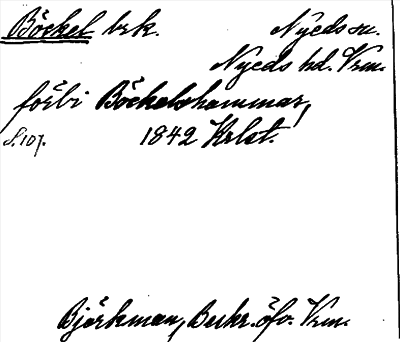 Böckel brk. Nyeds sn.
Nyeds hd. Vrm.
förbi Böckelshammar,
S. 107. 1842 Krlst.
Björkman, Beskr. öfv. Vrm.